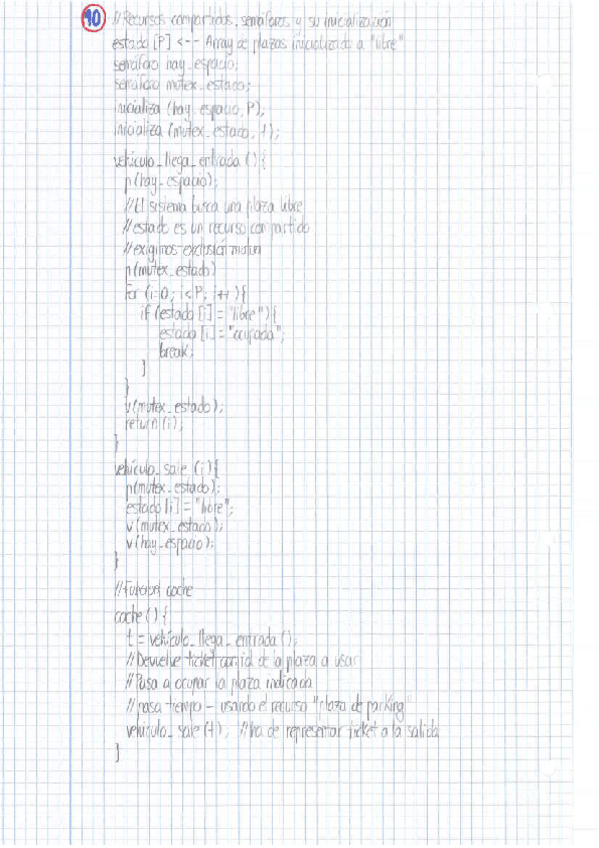 10 // Recursos compartidos, semáforos y su inicialización
estado [P] <-- Array de plazas inicializado a "libre"
semáforo hay_espacio;
semáforo mutex_estado;
inicializa (hay_espacio, P);
inicializa (mutex_estado, 1);
vehiculo_llega_entrada () {
p(hay_espacio);
// El sistema busca una plaza libre
// estado es un recurso compartido
// exigimos exclusión mutua
p(mutex_estado)
for (i=0; i<P; i++){
if (estado [i] = "libre"){
estado [i] = "ocupada";
break;
}
}
v(mutex_estado);
return (i);
}
vehiculo_sale (i){
p(mutex_estado);
estado [i] = "libre";
v(mutex_estado);
v(hay_espacio);
}
// Función coche
coche () {
t = vehiculo_llega_entrada ();
// Devuelve ticket con id de la plaza a usar
// Pasa a ocupar la plaza indicada
// pasa tiempo - usando el recurso "plaza de parking"
vehiculo_sale (t); // ha de presentar ticket a la salida
}